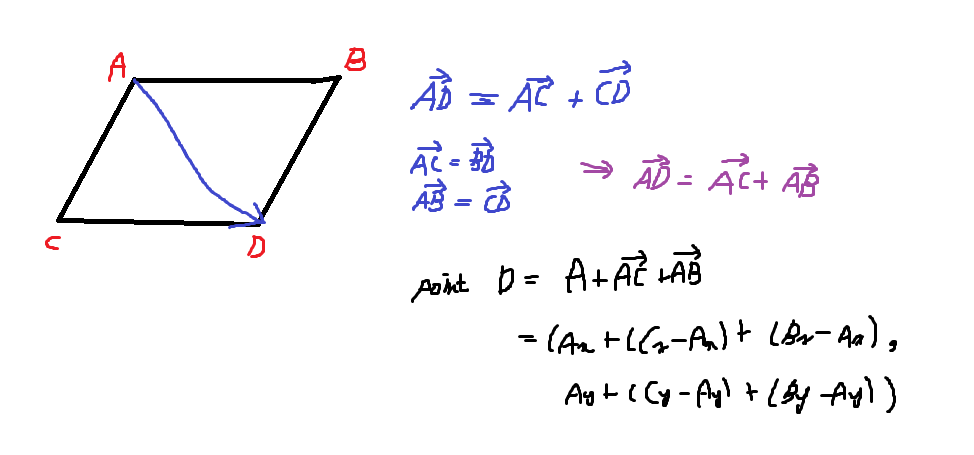 A
B
C
D
AD = AC + CD
AC = BD
AB = CD
⇒ AD = AC + AB
point D = A + AC + AB
= (Ax + (Cx - Ax) + (Bx - Ax),
Ay + (Cy - Ay) + (By - Ay))